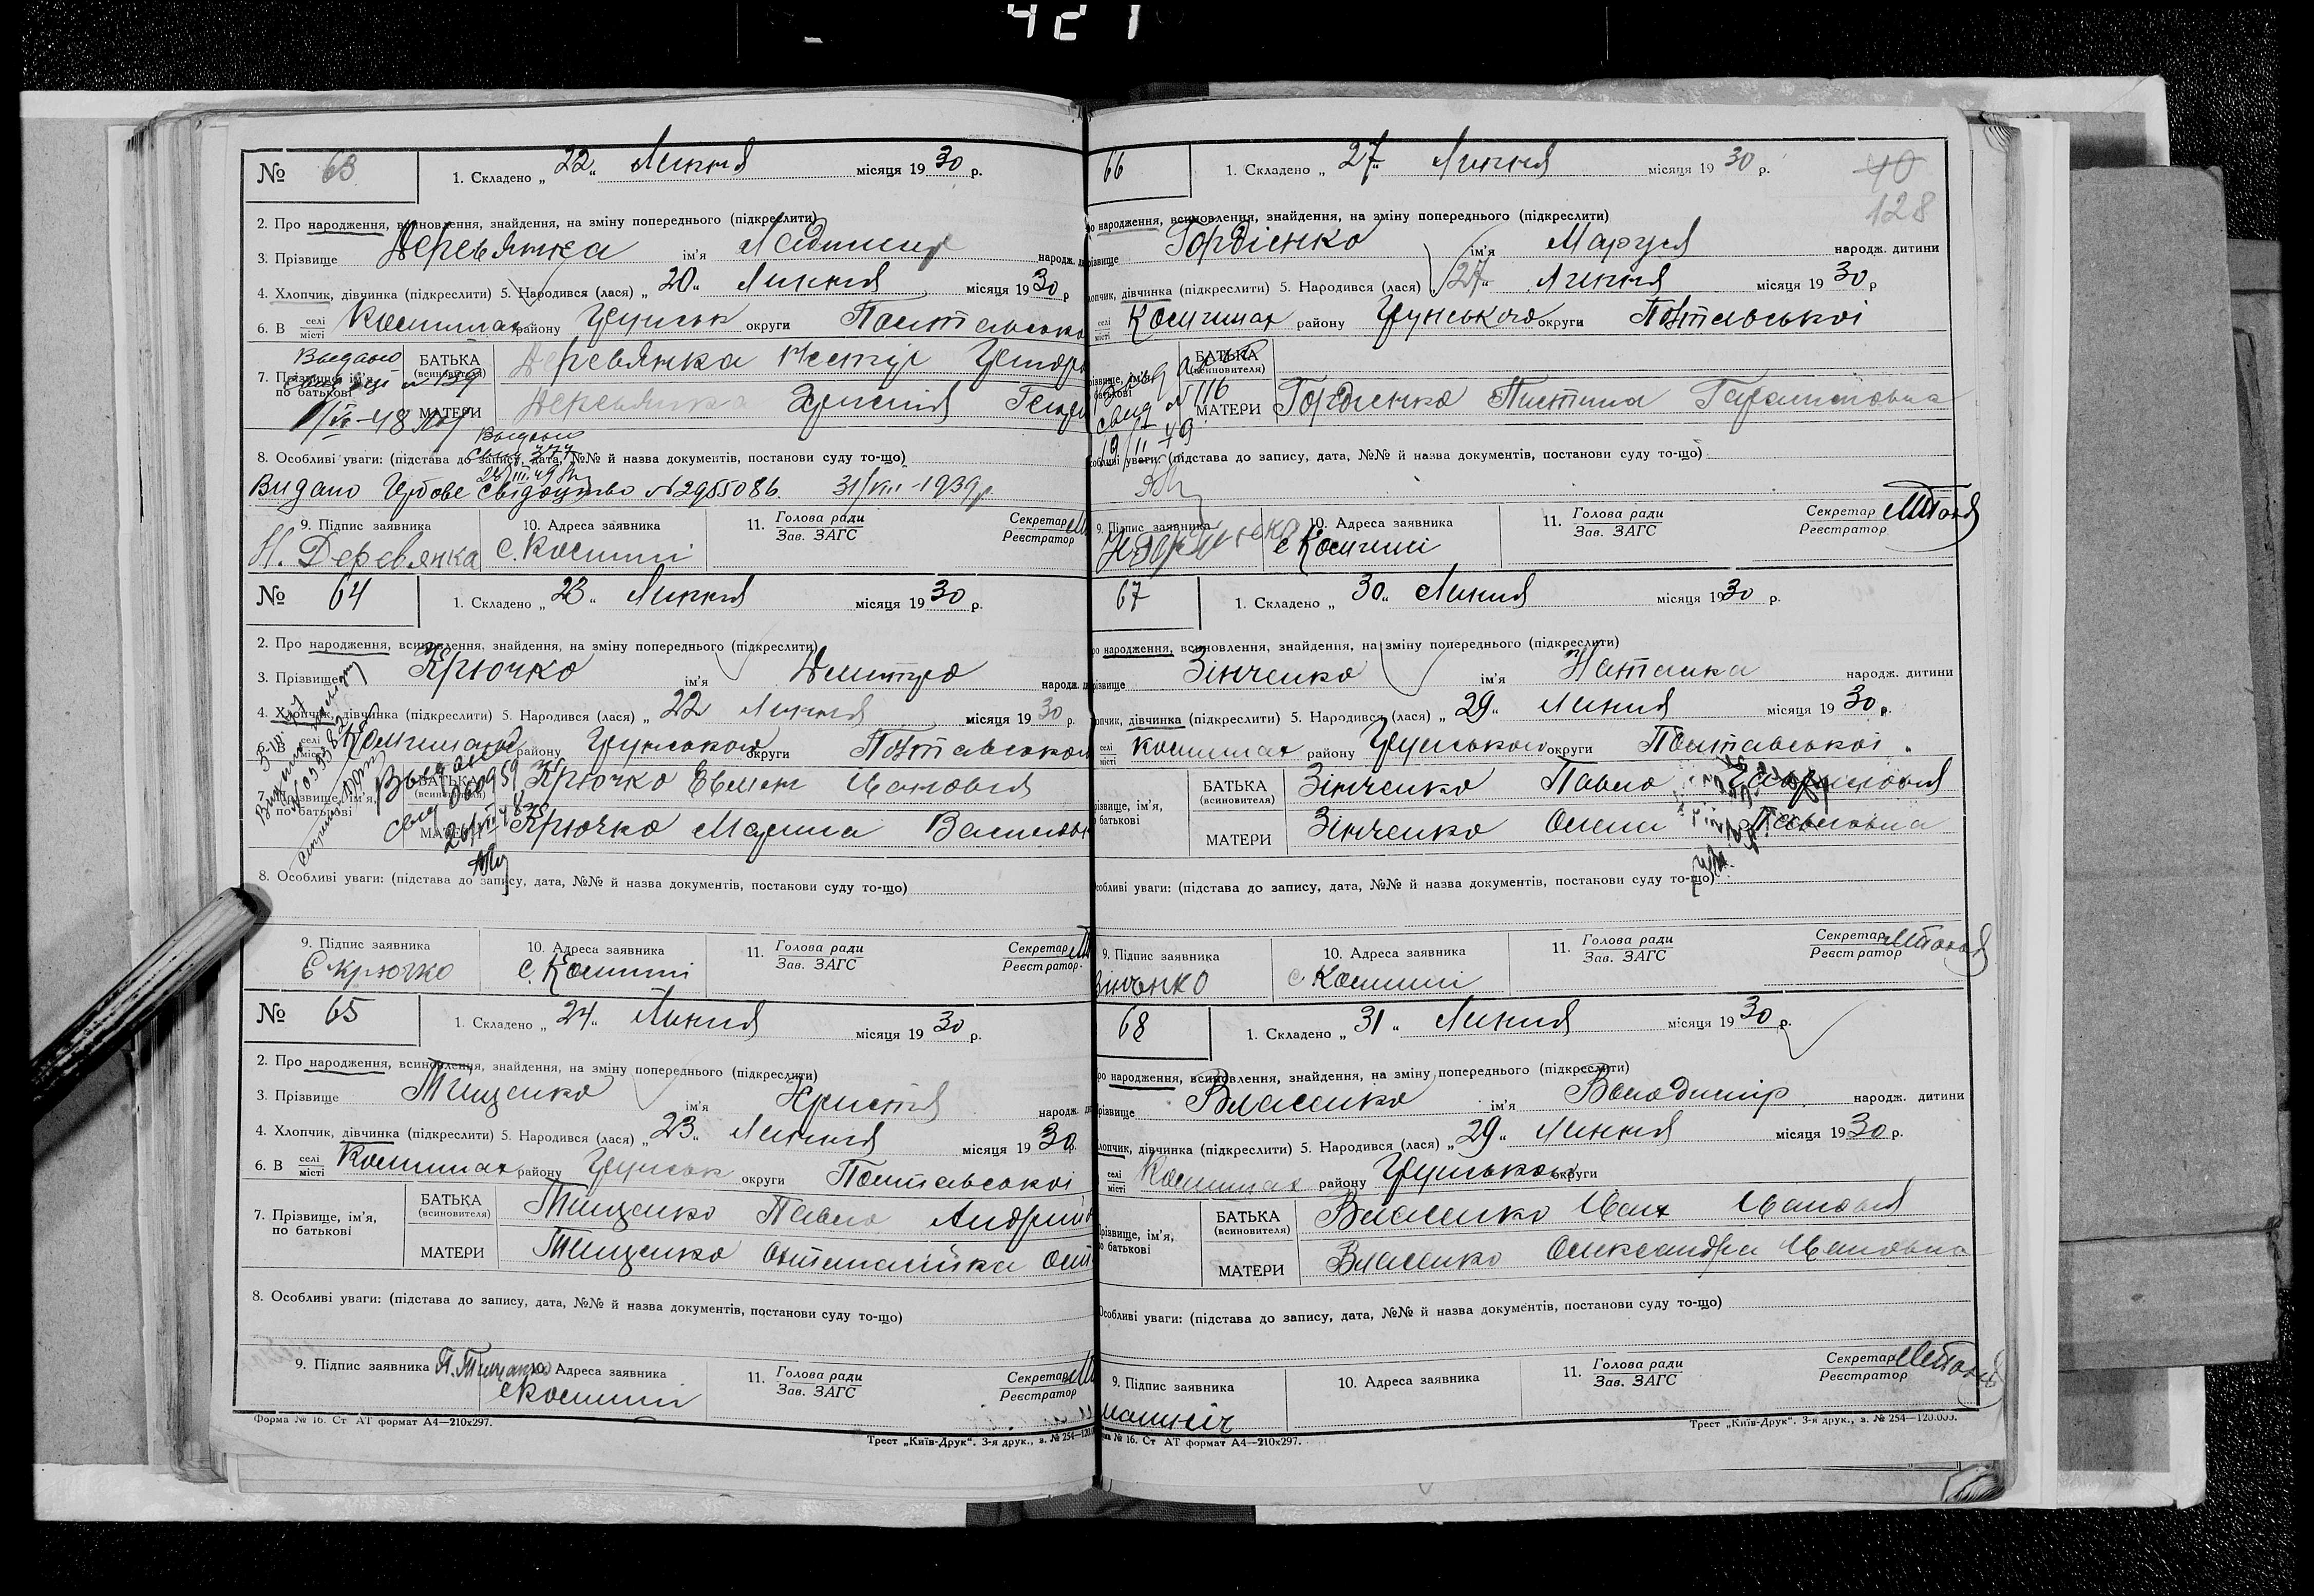 421
№ 63
1. Складено „ 22 " Липня місяця 19 30 р.
2. Про народження, всиновлення, знайдення, на зміну попереднього (підкреслити)
3. Прізвище Деревянка ім'я народж.
4. Хлопчик, дівчинка (підкреслити) 5. Народився (лася) „ 20 " Липня місяця 19 30 р
6. В селі місті Комишах району Грунськ округи
Выдано
7. Прізвище, ім'я, по батькові
№ 139
БАТЬКА (всиновителя) Деревянка Нестір
МАТЕРИ Деревянка
Выдано
8. Особливі уваги: (підстава до запису, дата, №№ й назва документів, постанови суду то-що)
Видано Гербове свідоцтво №2955086 31/VIII-1939р.
9. Підпис заявника Н. Деревянка
10. Адреса заявника с. Комиші
11. Голова ради Зав. ЗАГС
Секретар Реєстратор
№ 64
1. Складено „ 23 " Липня місяця 19 30 р.
2. Про народження, всиновлення, знайдення, на зміну попереднього (підкреслити)
3. Прізвище Крючко ім'я Дмитро народж.
4. Хлопчик, дівчинка (підкреслити) 5. Народився (лася) „ 22 Липня місяця 19 30 р.
6. В селі місті району Грунського округи Полтавської
7. Прізвище, ім'я, по батькові
Выдано
БАТЬКА (всиновителя) Крючко Евмен Іванович
МАТЕРИ Крючко Марина
8. Особливі уваги: (підстава до запису, дата, №№ й назва документів, постанови суду то-що)
9. Підпис заявника Є Крючко
10. Адреса заявника с. Комиші
11. Голова ради Зав. ЗАГС
Секретар Реєстратор
№ 65
1. Складено „ 24 " Липня місяця 19 30 р.
2. Про народження, всиновлення, знайдення, на зміну попереднього (підкреслити)
3. Прізвище Тищенко ім'я Христя народж.
4. Хлопчик, дівчинка (підкреслити) 5. Народився (лася) „ 23 " Липня місяця 19 30 р.
6. В селі місті Комишах району Грунськ округи Полтавської
7. Прізвище, ім'я, по батькові
БАТЬКА (всиновителя) Тищенко Павло
МАТЕРИ Тищенко
8. Особливі уваги: (підстава до запису, дата, №№ й назва документів, постанови суду то-що)
9. Підпис заявника П. Тищенко
10. Адреса заявника с Комиші
11. Голова ради Зав. ЗАГС
Секретар Реєстратор
Форма № 16. Ст АТ формат А4—210х297.
Трест „Київ-Друк". 3-я друк., з. № 254—120.0
66
1. Складено „ 27 " Липня місяця 19 30 р.
40
128
народження, всиновлення, знайдення, на зміну попереднього (підкреслити)
Гордієнко ім'я Маруся народж. дитини
дівчинка (підкреслити) 5. Народився (лася) 27 " Липня місяця 19 30 р
селі місті Комишах району Грунського округи Полтавської
БАТЬКА (всиновителя)
№ 116
МАТЕРИ Гордієнко Пистина
19/II 49
уваги: (підстава до запису, дата, №№ й назва документів, постанови суду то-що)
9. Підпис заявника
10. Адреса заявника с Комиші
11. Голова ради Зав. ЗАГС
Секретар Реєстратор
67
1. Складено „ 30 " Липня місяця 19 30 р.
народження, всиновлення, знайдення, на зміну попереднього (підкреслити)
Зінченко ім'я Наталка народж. дитини
дівчинка (підкреслити) 5. Народився (лася) „ 29 " Липня місяця 19 30 р.
селі місті Комишах району Грунського округи Полтавської
БАТЬКА (всиновителя) Зінченко Павло
МАТЕРИ Зінченко Олена Павловна
уваги: (підстава до запису, дата, №№ й назва документів, постанови суду то-що)
9. Підпис заявника
10. Адреса заявника с Комиші
11. Голова ради Зав. ЗАГС
Секретар Реєстратор
68
1. Складено „ 31 " Липня місяця 19 30 р.
народження, всиновлення, знайдення, на зміну попереднього (підкреслити)
Власенко ім'я Володимір народж. дитини
дівчинка (підкреслити) 5. Народився (лася) „ 29 " Липня місяця 19 30 р.
селі місті Комишах району Грунського округи
БАТЬКА (всиновителя) Власенко Іван Іванович
МАТЕРИ Власенко Олександра Івановна
Особливі уваги: (підстава до запису, дата, №№ й назва документів, постанови суду то-що)
9. Підпис заявника
10. Адреса заявника
11. Голова ради Зав. ЗАГС
Секретар Реєстратор
№ 16. Ст АТ формат А4—210х297.
Трест „Київ-Друк". 3-я друк., з. № 254—120.000.